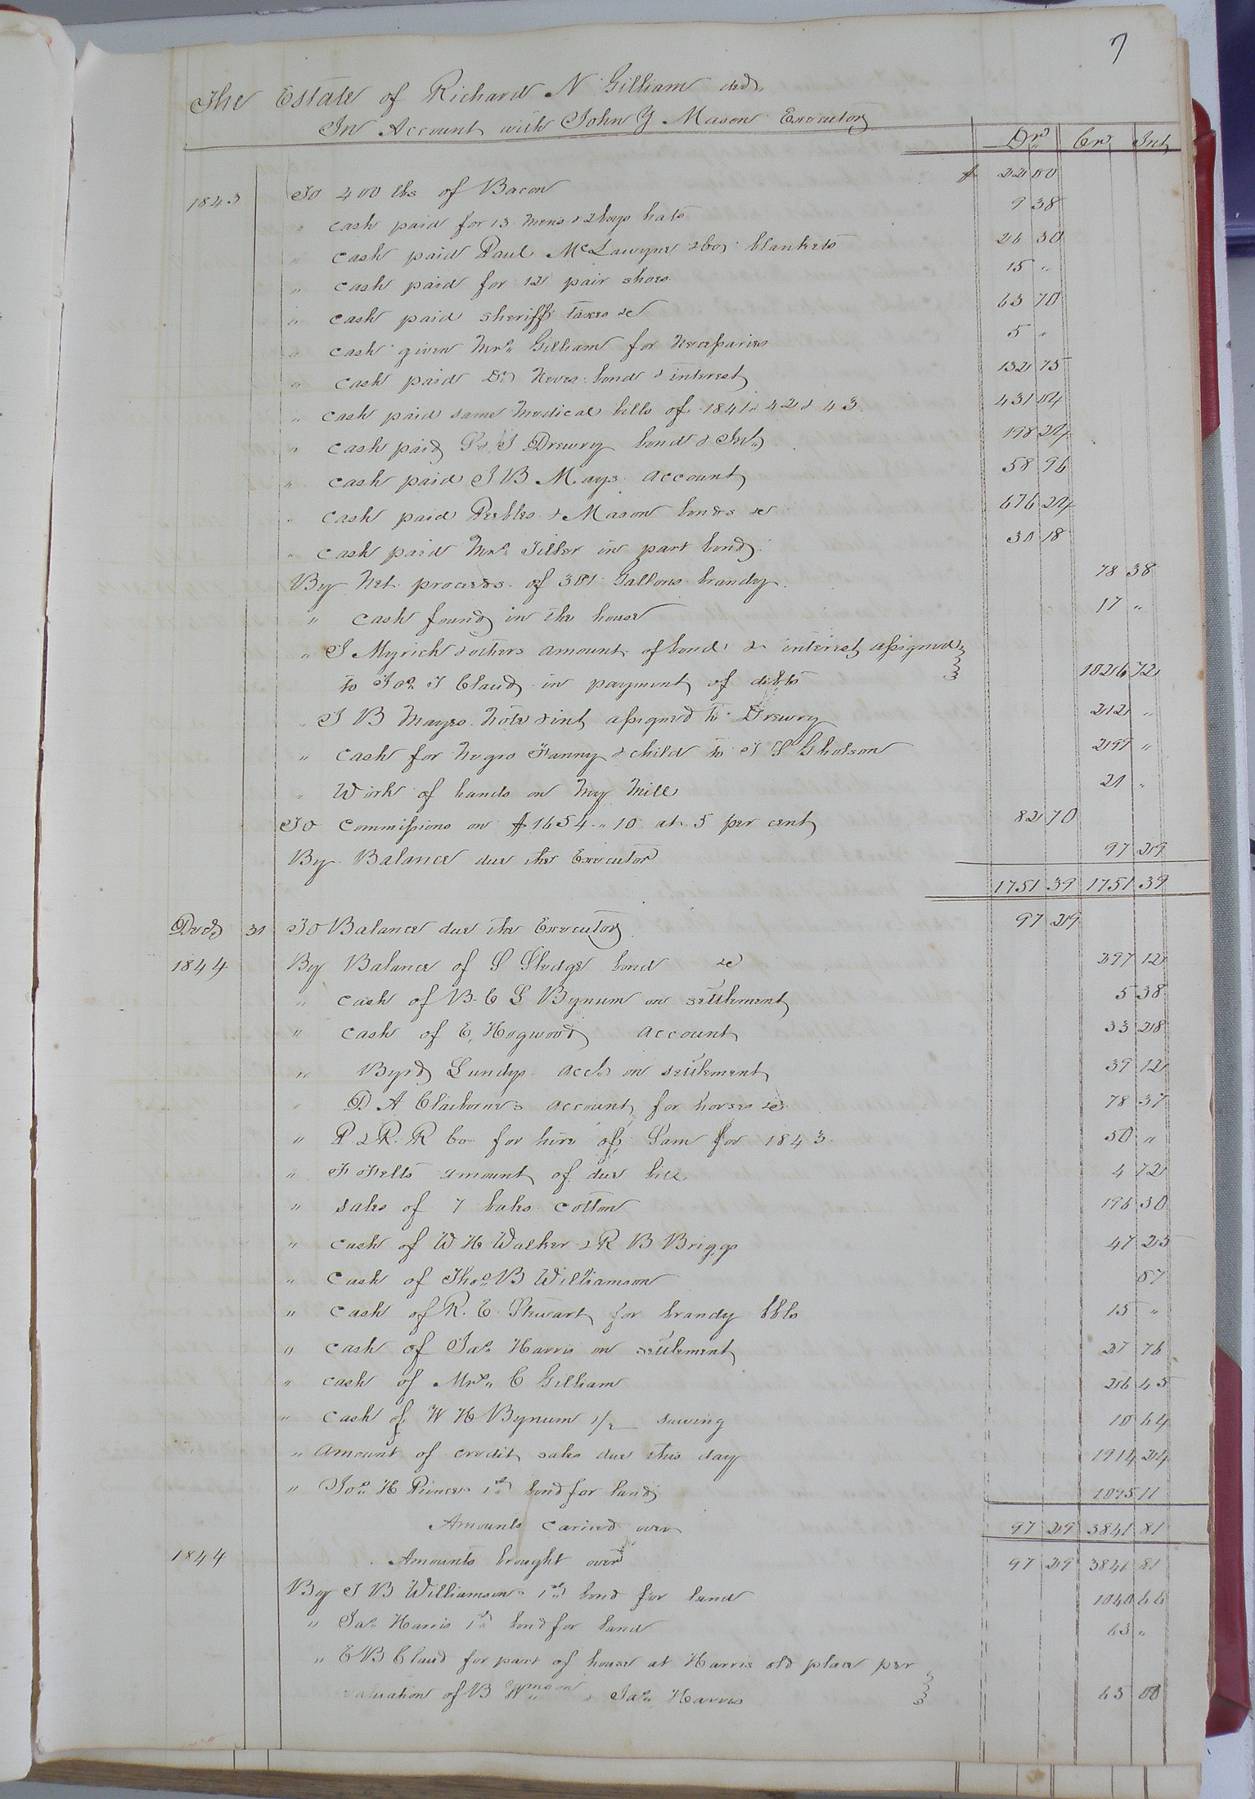 7
The Estate of Richard N Gilliam decd
In Account with John Y Mason Executor
Dr Cr Int
1843 To 400 lbs of Bacon $ 22 00
" cash paid for 13 mens & 2 boys hats 9 38
" cash paid Paul McLawyne & boy blankets 26 50
" cash paid for 12 pair shoes 15 "
" cash paid sheriff taxes &c 63 70
" cash given Mrs Gilliam for Necessaries 5 "
" cash paid Dr Neves bond & interest 132 75
" cash paid same Medical bills of 1841 & 42 & 43 431 04
" cash paid S Drewry bond & Int 198 24
" cash paid J B Mays account 58 96
" cash paid Peebles & Mason bonds &c 676 24
" cash paid Mrs Tiller in part bond 30 18
By Net proceeds of 301 Gallons brandy 78 38
" cash found in the house 17 "
" J Myrick & others amount of bond & interest assigned
to Jno T Claud in payment of debts 1026 72
" J B Mayes Note & int assigned to Drewry 212 "
" cash for Negro Fanny & child to T S Gholson 299 "
" Work of hands on my Mill 21 "
To Commissions on $1654.10 at 5 per cent 82 70
By Balance due the Executor 97 29
1751 39 1751 39
Decr 31 To Balance due the Executor 97 29
1844 By Balance of S Sledge bond &c 297 12
" cash of B C S Bynum on settlement 5 38
" cash of E, Hogwood account 33 28
" Byrd Lundys acct on settlement 39 12
" D A Claibornes account for horses &c 78 37
" P & R. R Co for hire of Sam for 1843 50 "
" F Felts amount of due bill 4 72
" sales of 7 bales cotton 196 30
" cash of W H Walker & R B Briggs 47 25
" cash of Thos B Williamson 87
" cash of R. E. Stewart for brandy bbls 15 "
" cash of Jas Harris on settlement 27 76
" cash of Mrs C Gilliam 26 45
" cash of W H Bynum 1/2 sawing 10 64
" Amount of credit sales due this day 1914 24
" Jno H Princes 1st bond for land 1095 11
Amounts carried over 97 29 3841 81
1844 Amounts brought over 97 29 3841 81
By T B Williamsons 1st bond for land 1040 66
" Jas Harris 1st bond for land 63 "
" E B Claud for part of house at Harris old place per
valuation of B Wmson & Jas Harris 65 00